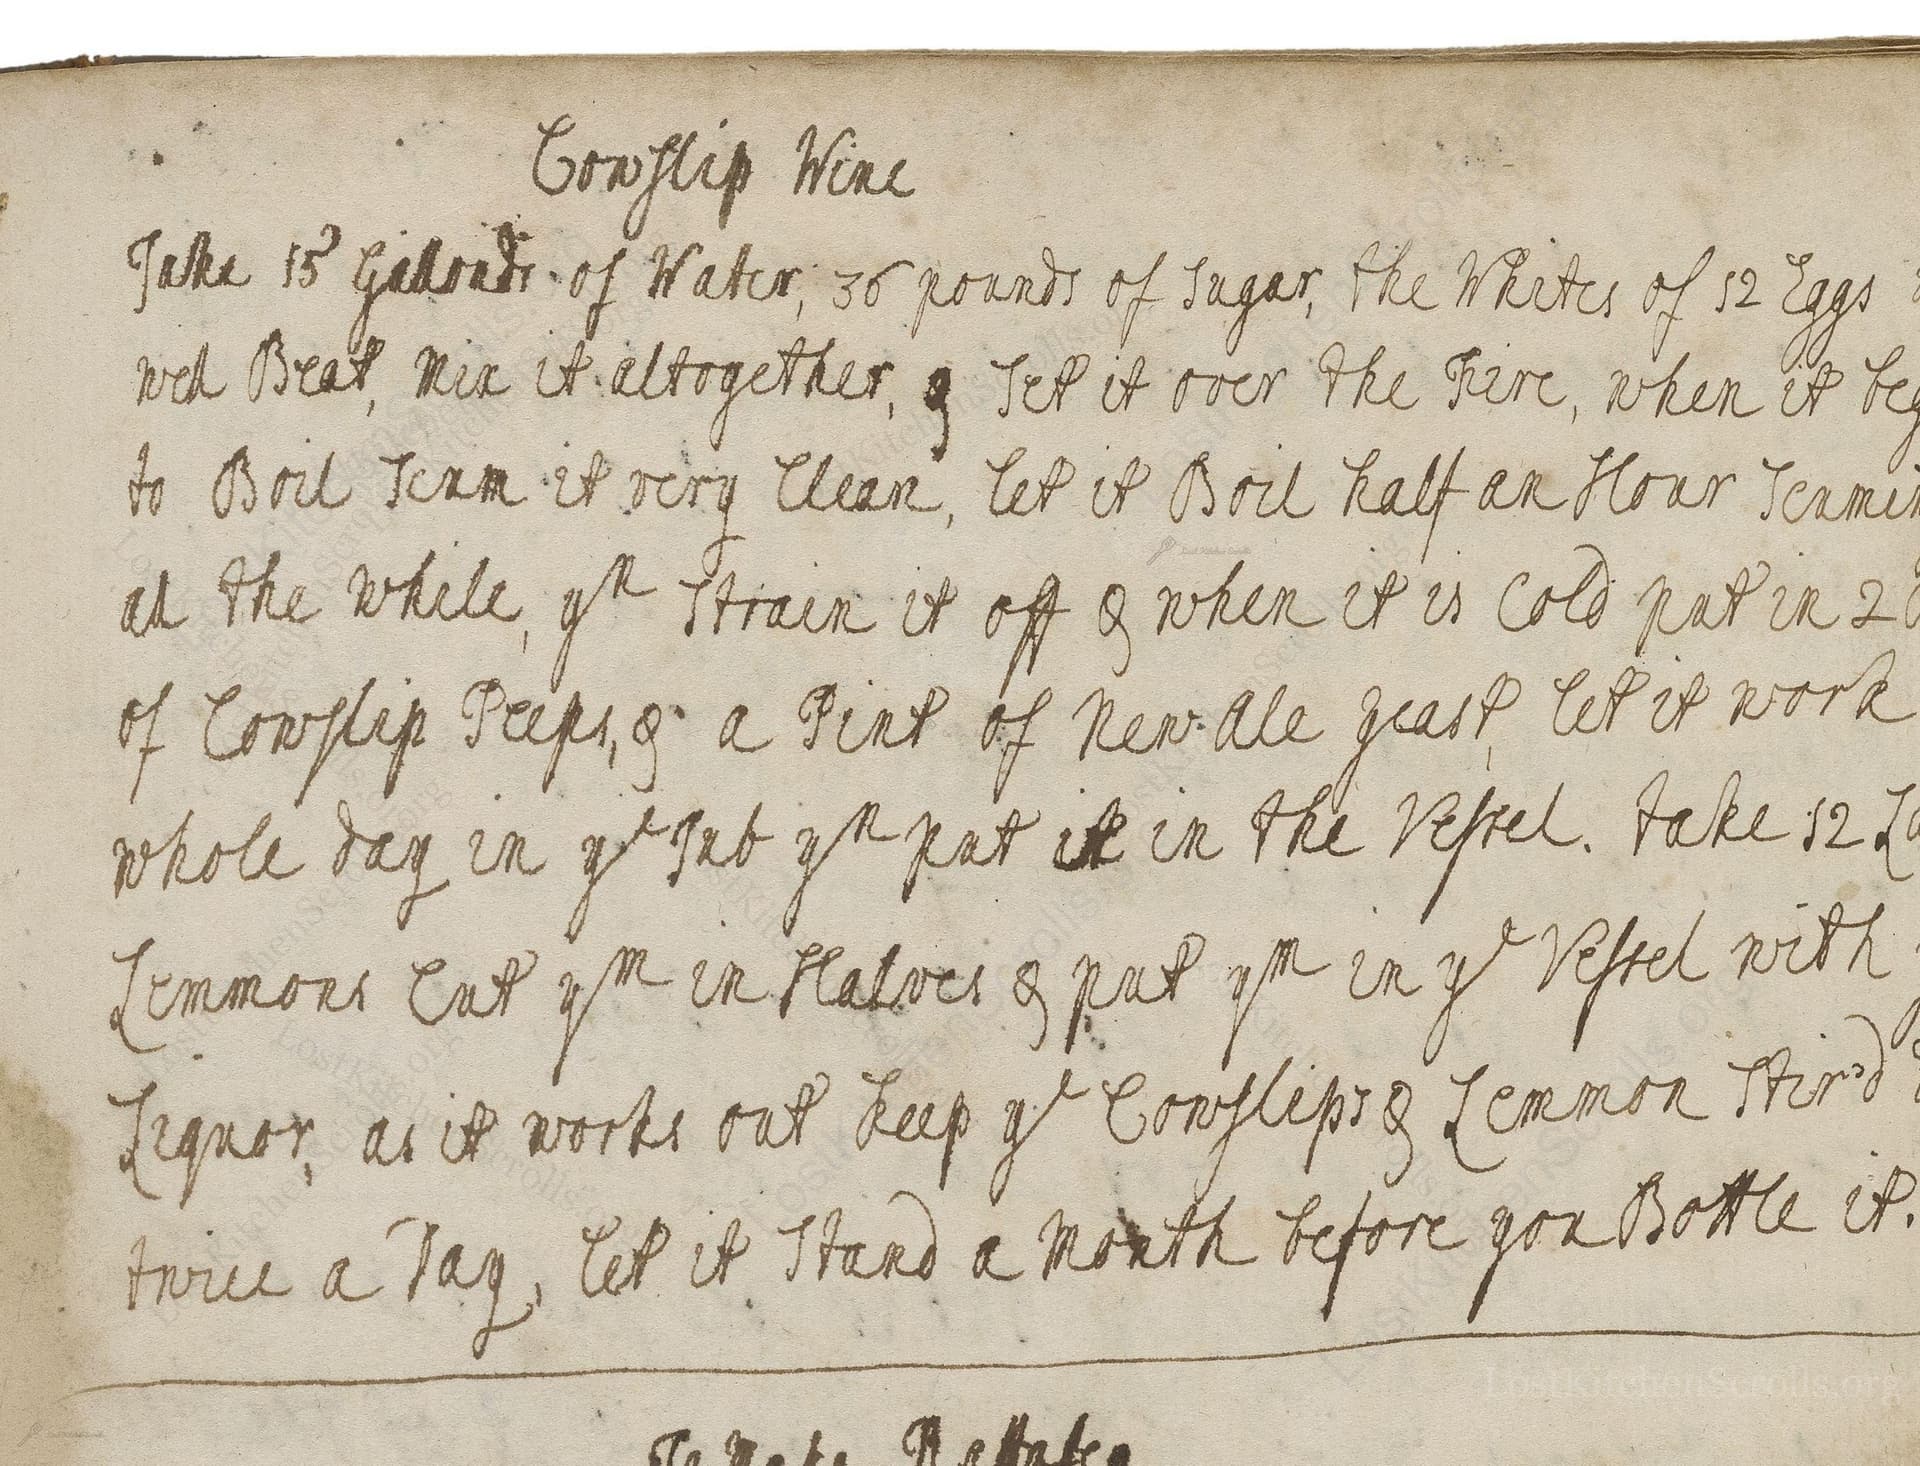 Cowslip Wine
Take 15 Gallonds of Water, 36 pounds of Sugar, the Whites of 12 Eggs
well Beat, Mix it altogether, & Set it over the Fire, when it beg
to Boil Scum it very Clean, let it Boil half an Hour Scumin
all the while, yn Strain it off & when it is Cold put in 2
of Cowslip Peeps, & a Pint of New Ale yeast, let it work
whole day in ye Tub yn put it in the Vessel. take 12
Lemmons Cut ym in Halves & put ym in ye Vessel with
Liquor, as it works out keep ye Cowslips & Lemmon Stir'd
twice a Day, let it Stand a Month before you Bottle it.
LostKitchenScrolls.org
To Make